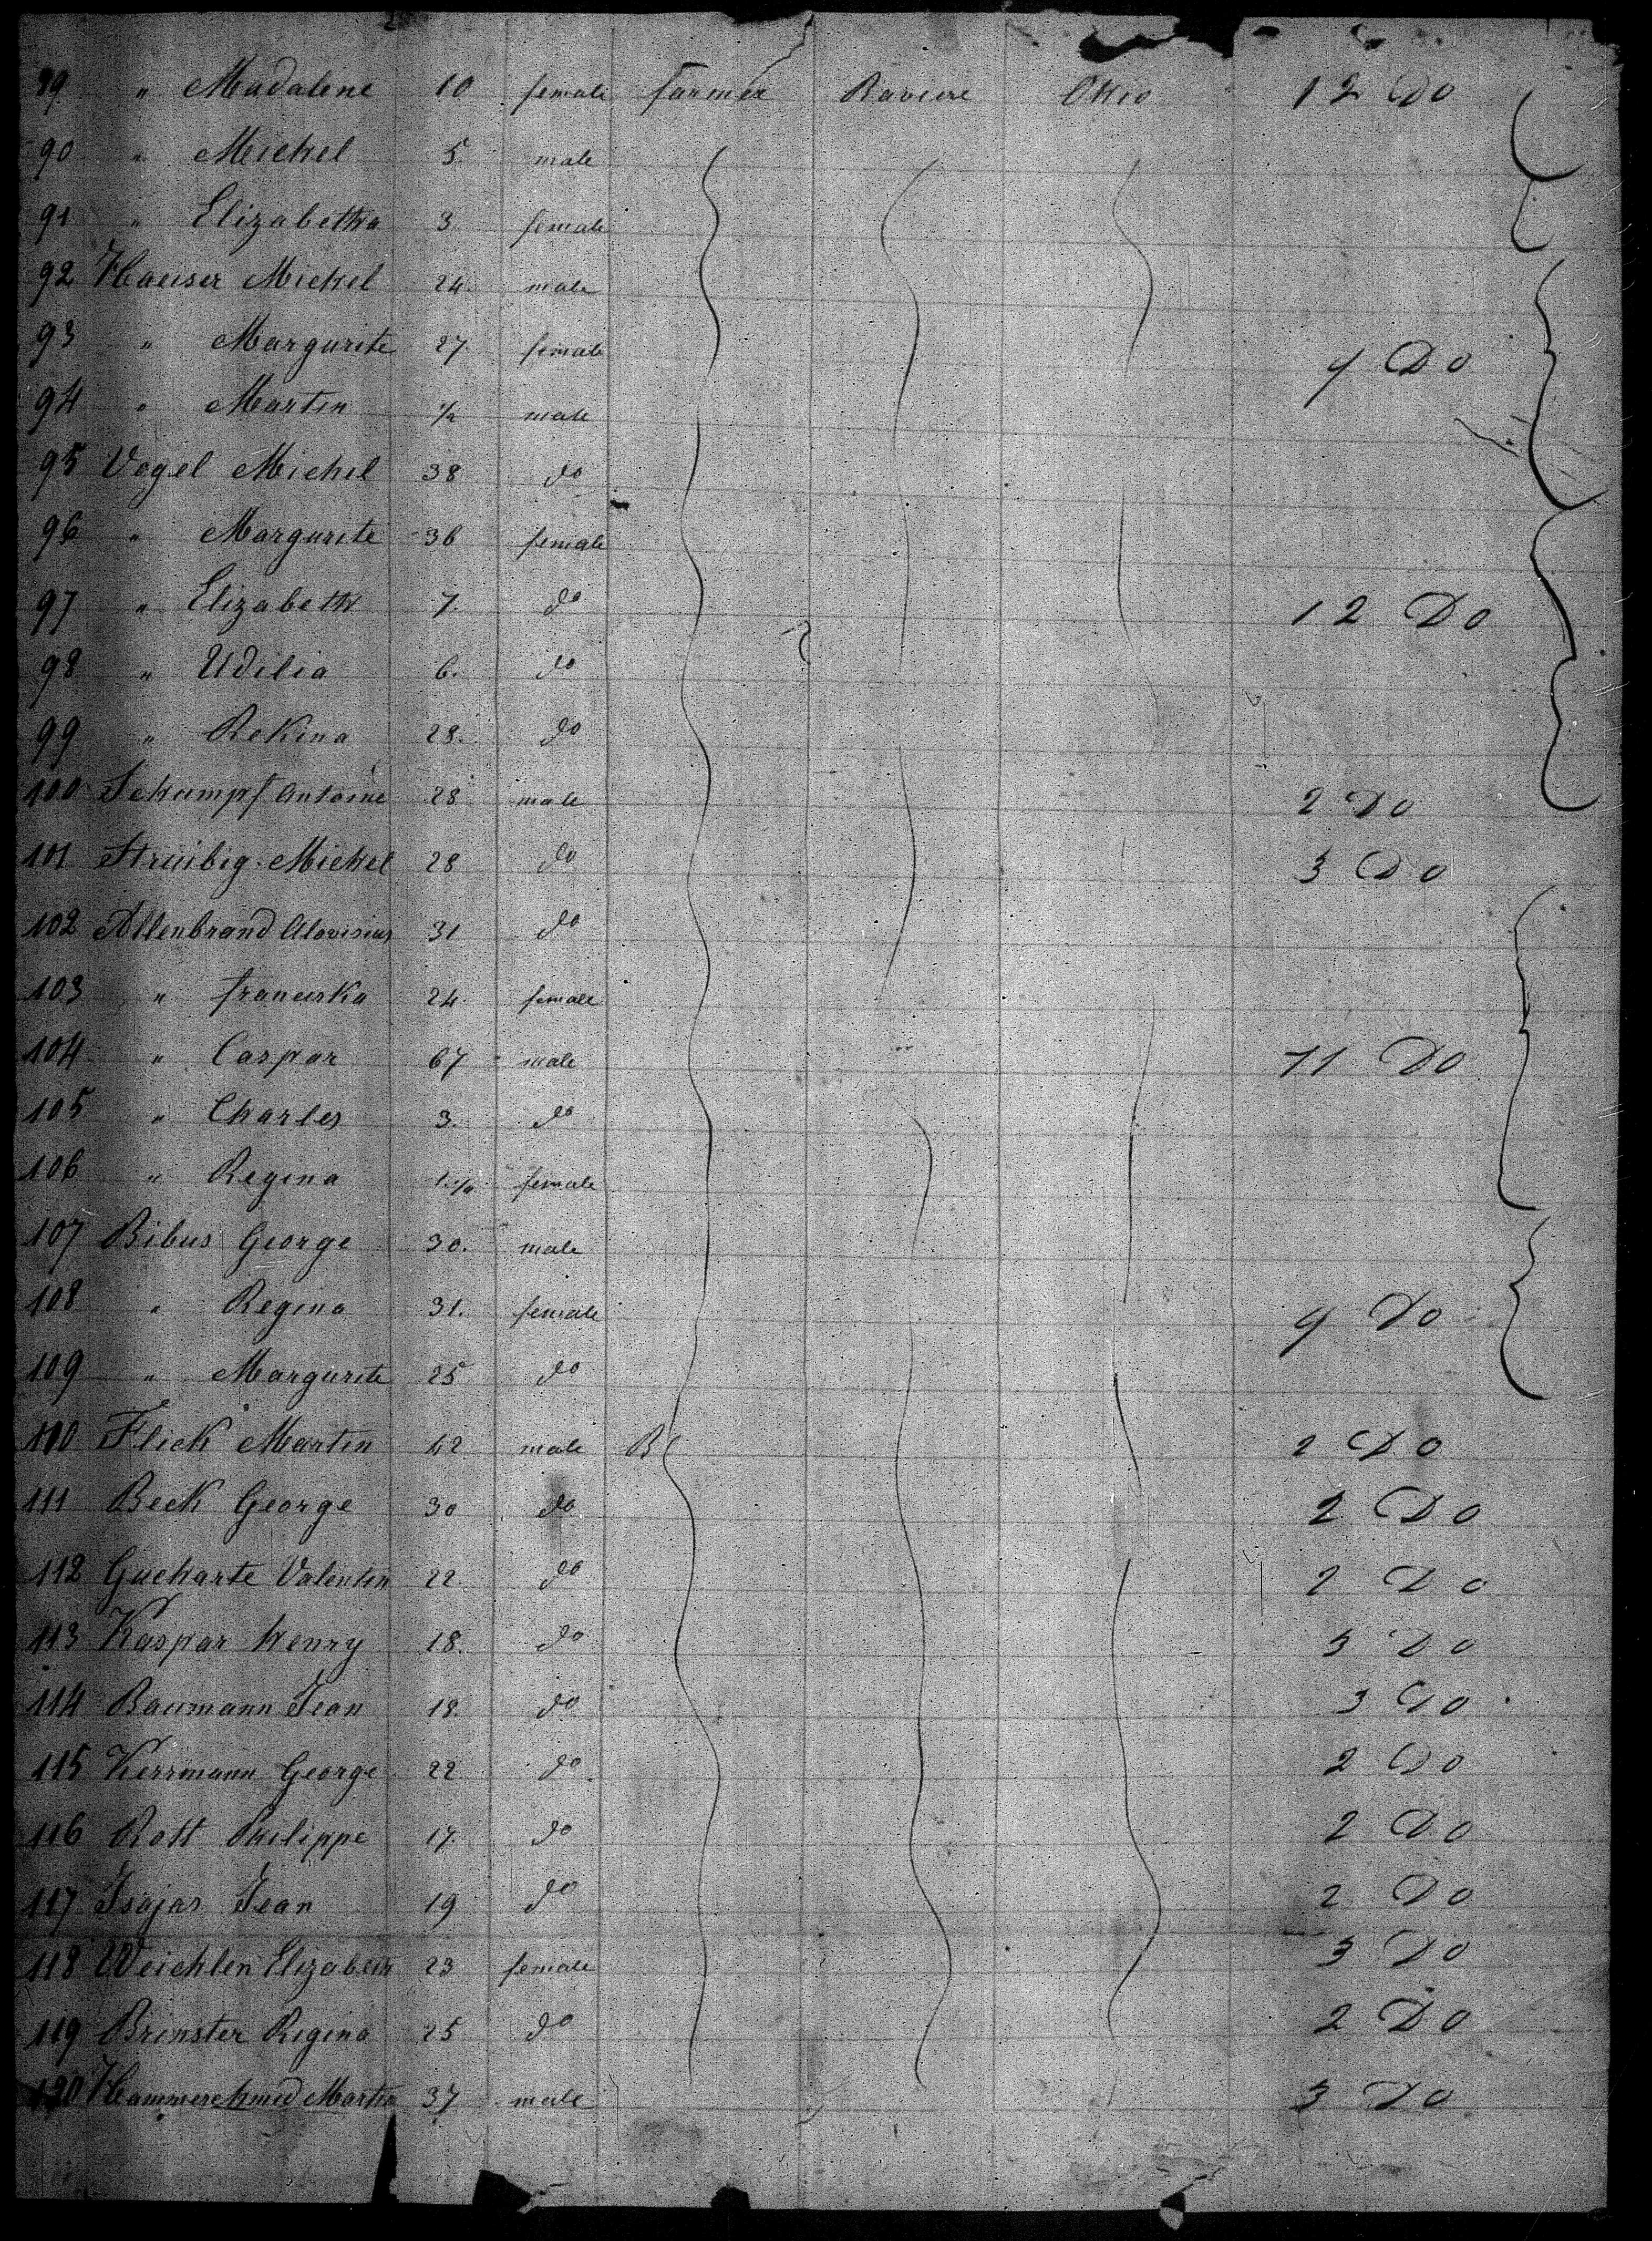 89 " Madalene 10 female farmer Baviere Ohio 12 Do
90 " Michel 5. male
91 " Elizabetha 3. female
92 Haeiser Michel 24. male
93 " Margurite 27. female 9 Do
94 " Martin ½ male
95 Vogel Michel 38 do
96 " Margurite 36 female
97 " Elizabeth 7. do 12 Do
98 " Udilia 6. do
99 " Rekina 28. do
100 Schumpf Antoine 28 male 2 Do
101 Struibig Michel 28 do 3 Do
102 Allenbrand Alovisius 31 do
103 " franciska 24. female
104 " Caspar 67 male 11 Do
105 " Charles 3. do
106 " Regina female
107 Bibus George 30. male
108 " Regina 31. female 9 Do
109 " Margurite 25 do
110 Flick Martin 42 male B 2 Do
111 Beck George 30 do 2 Do
112 Guckarte Valentin 22. do 2 Do
113 Kaspar henry 18. do 3 Do
114 Baumann Jean 18. do 3 Do
115 Herrmann George 22 do 2 Do
116 Rott Philippe 17. do 2 Do
117 Isajas Jean 19 do 2 Do
118 Weichlen Elizabeth 23 female 3 Do
119 Brinster Regina 25 do 2 Do
120 Hammerchmid Martin 37 male 3 Do